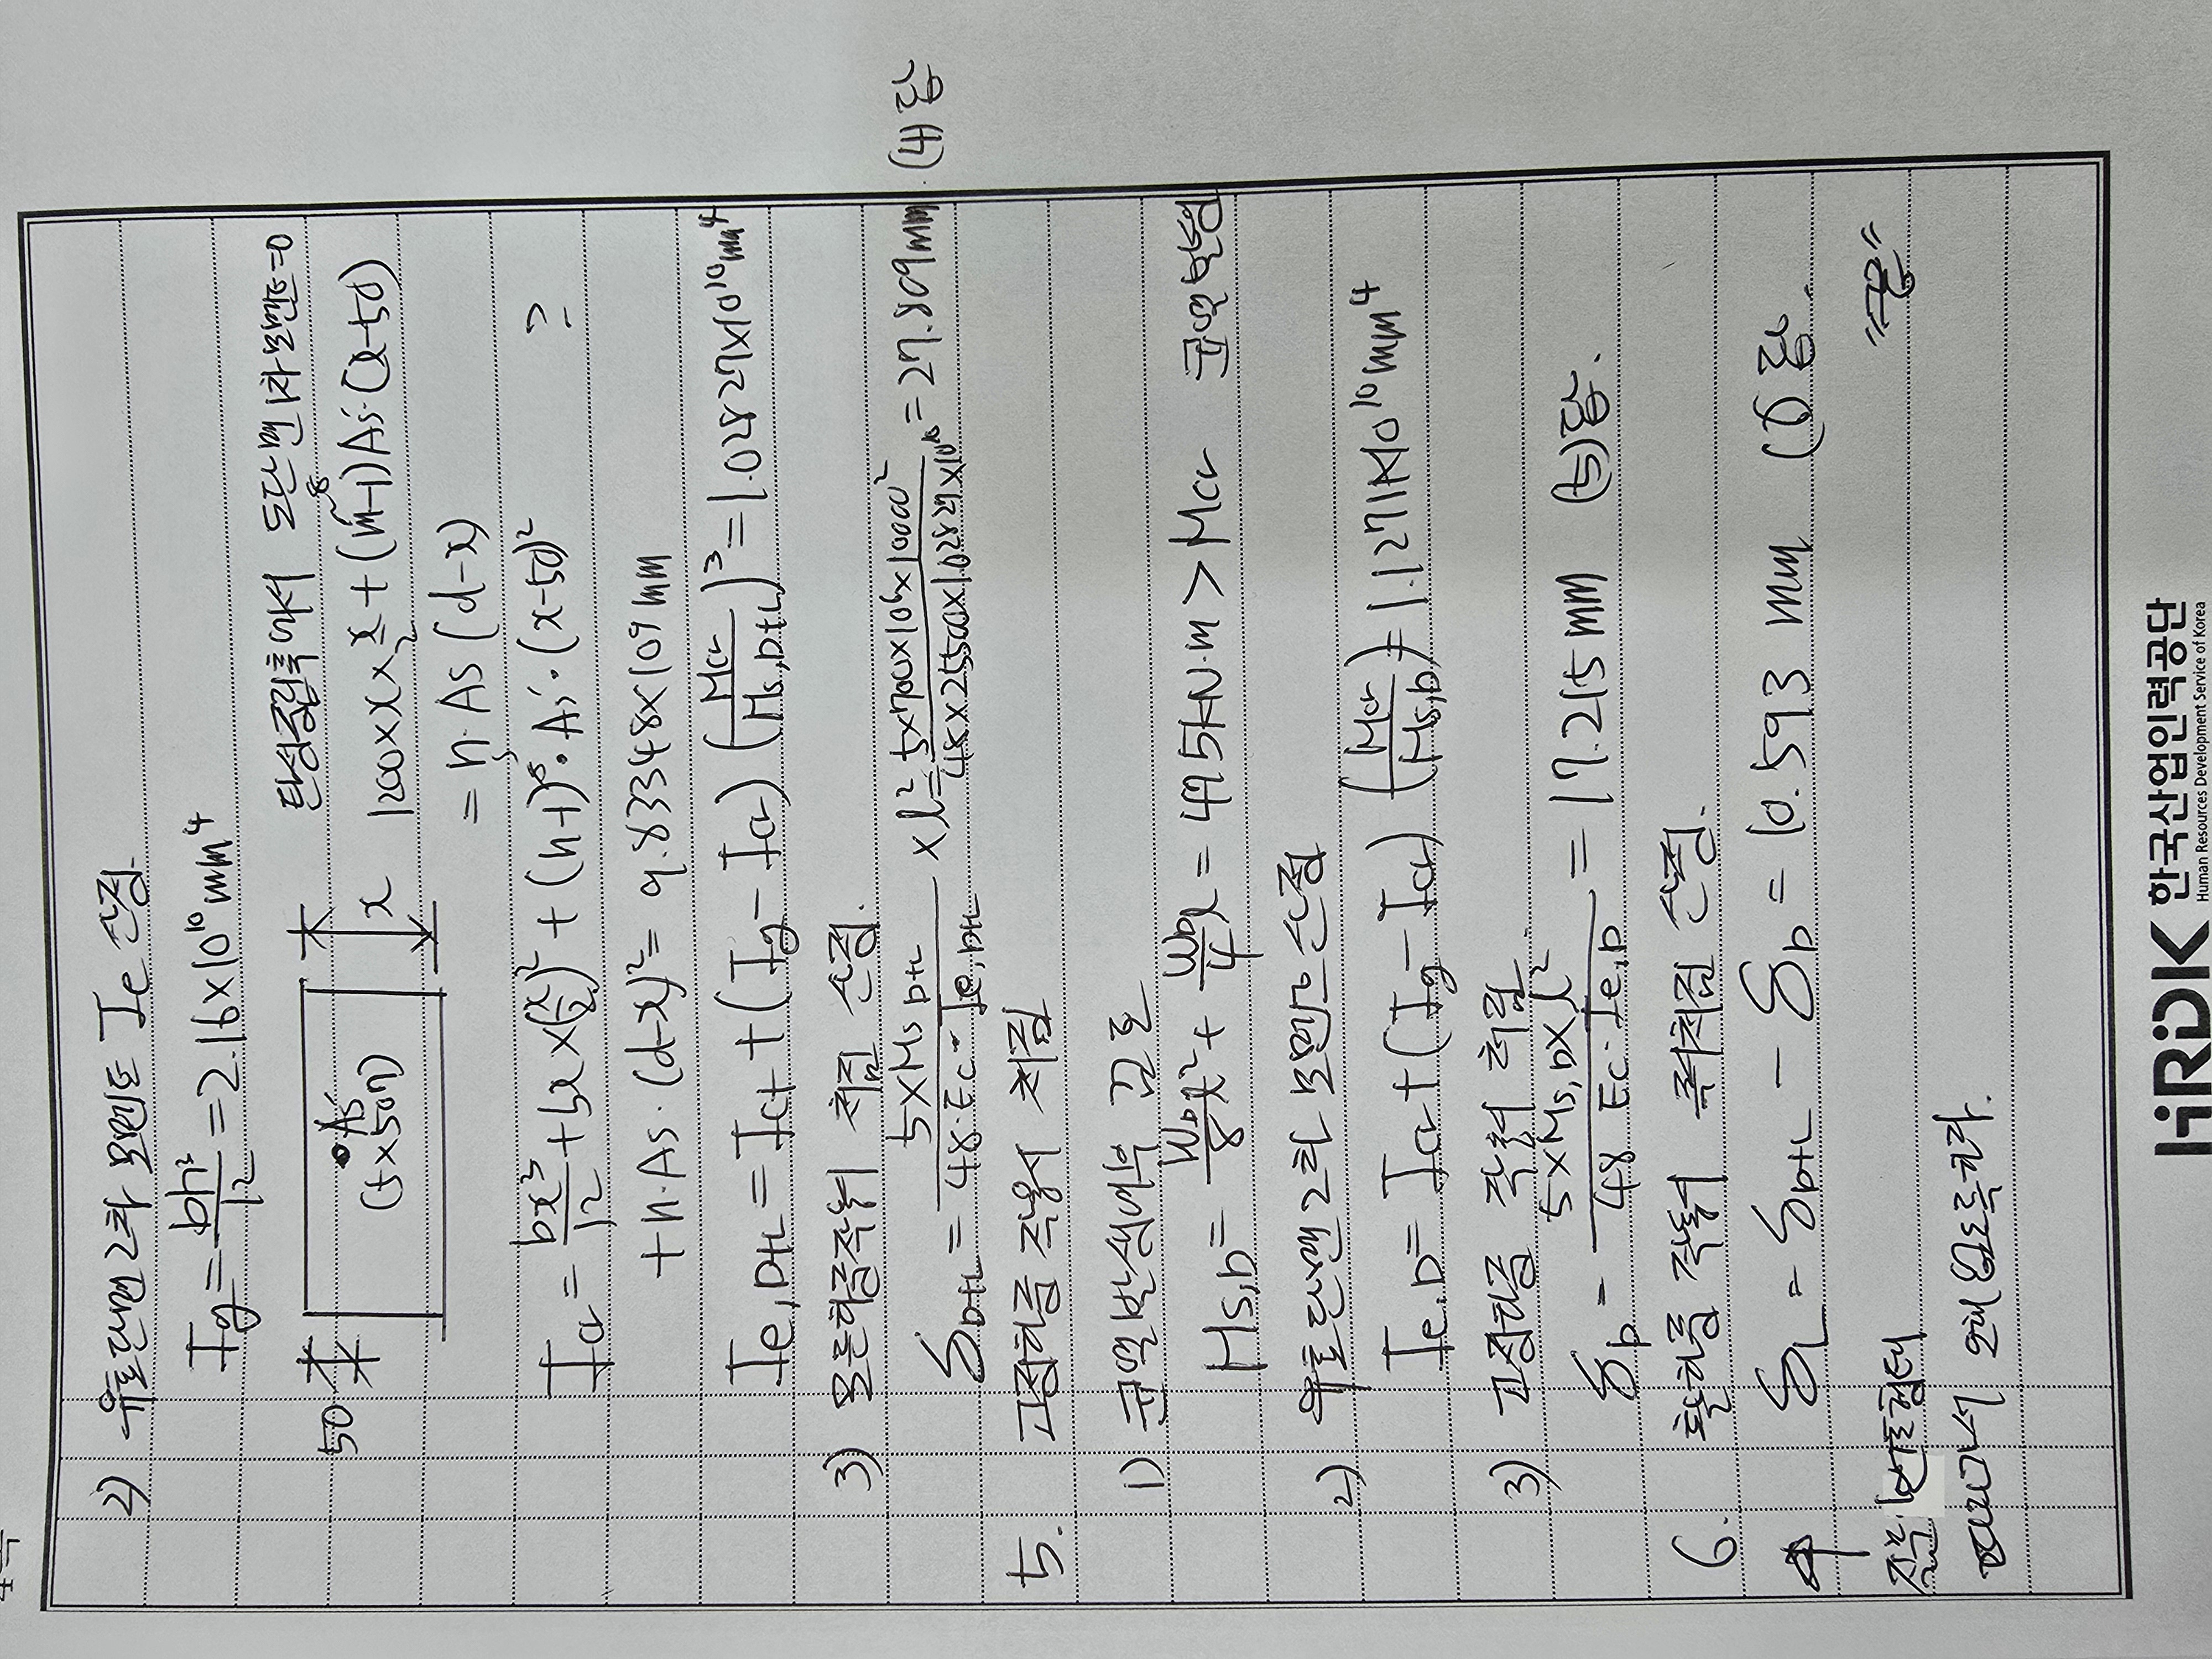 2) 유효단면2차 모멘트 Ie 산정.
Ig = bh³/12 = 2.16×10¹⁰mm⁴
50 As' (5×507) x 탄성중립축에서 도단면1차모멘트=0
1200×x×x/2 + (m-1)As'·(x-50)
8
= n·As(d-x)
Icr = bx³/12 + bx×(x/2)² + (n-1)⁸·As'·(x-50)² ?
+n·As·(d-x)² = 9.83348×10⁹mm
Ie,D+L = Icr + (Ig - Icr)(Mcr/Ms,D+L)³ = 1.02827×10¹⁰mm⁴
3) 모든하중작용시 처짐 산정.
δD+L = 5×Ms D+L/48·Ec·Ie,D+L ×l² = 5×700×10⁶×10000²/48×25500×1.02827×10¹⁰ = 27.809mm. (4)답
5. 고정하중 작용시 처짐
1) 균열발생여부 검토
Ms,D = WDl²/8 + WDl/4 = 495kN·m > Mcr 균열발생
2) 유효단면2차 모멘트산정
Ie,D = Icr + (Ig - Icr)(Mcr/Ms,D) = 1.1271×10¹⁰mm⁴
3) 고정하중 작용시 처짐
δD = 5×Ms,D×l²/48 Ec·Ie,D = 17.215mm (5)답.
6. 활하중 작용시 즉시처짐 산정.
δL = δD+L - δD = 10.593mm (6)답.
"끝"
HRDK 한국산업인력공단
Human Resources Development Service of Korea